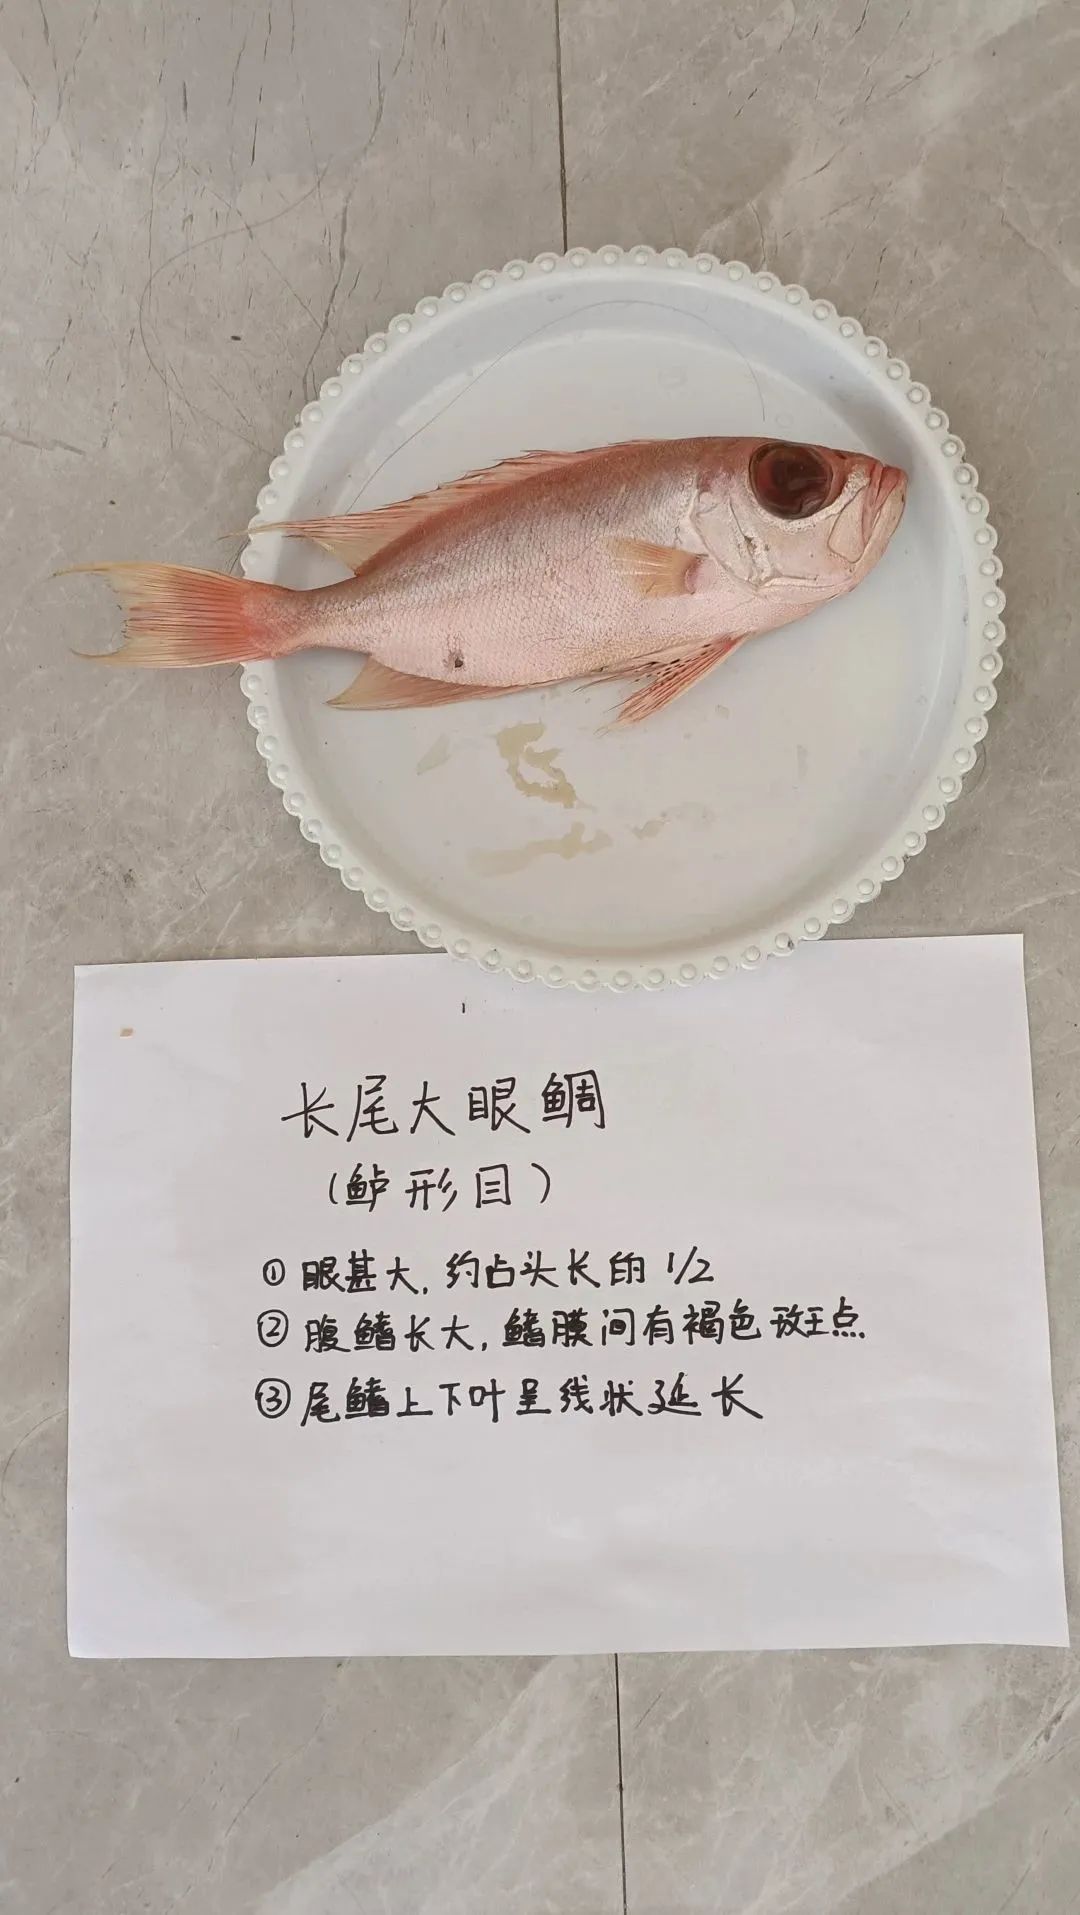 长尾大眼鲷
（鲈形目）
① 眼甚大，约占头长的 1/2
② 腹鳍长大，鳍膜间有褐色斑点
③ 尾鳍上下叶呈线状延长